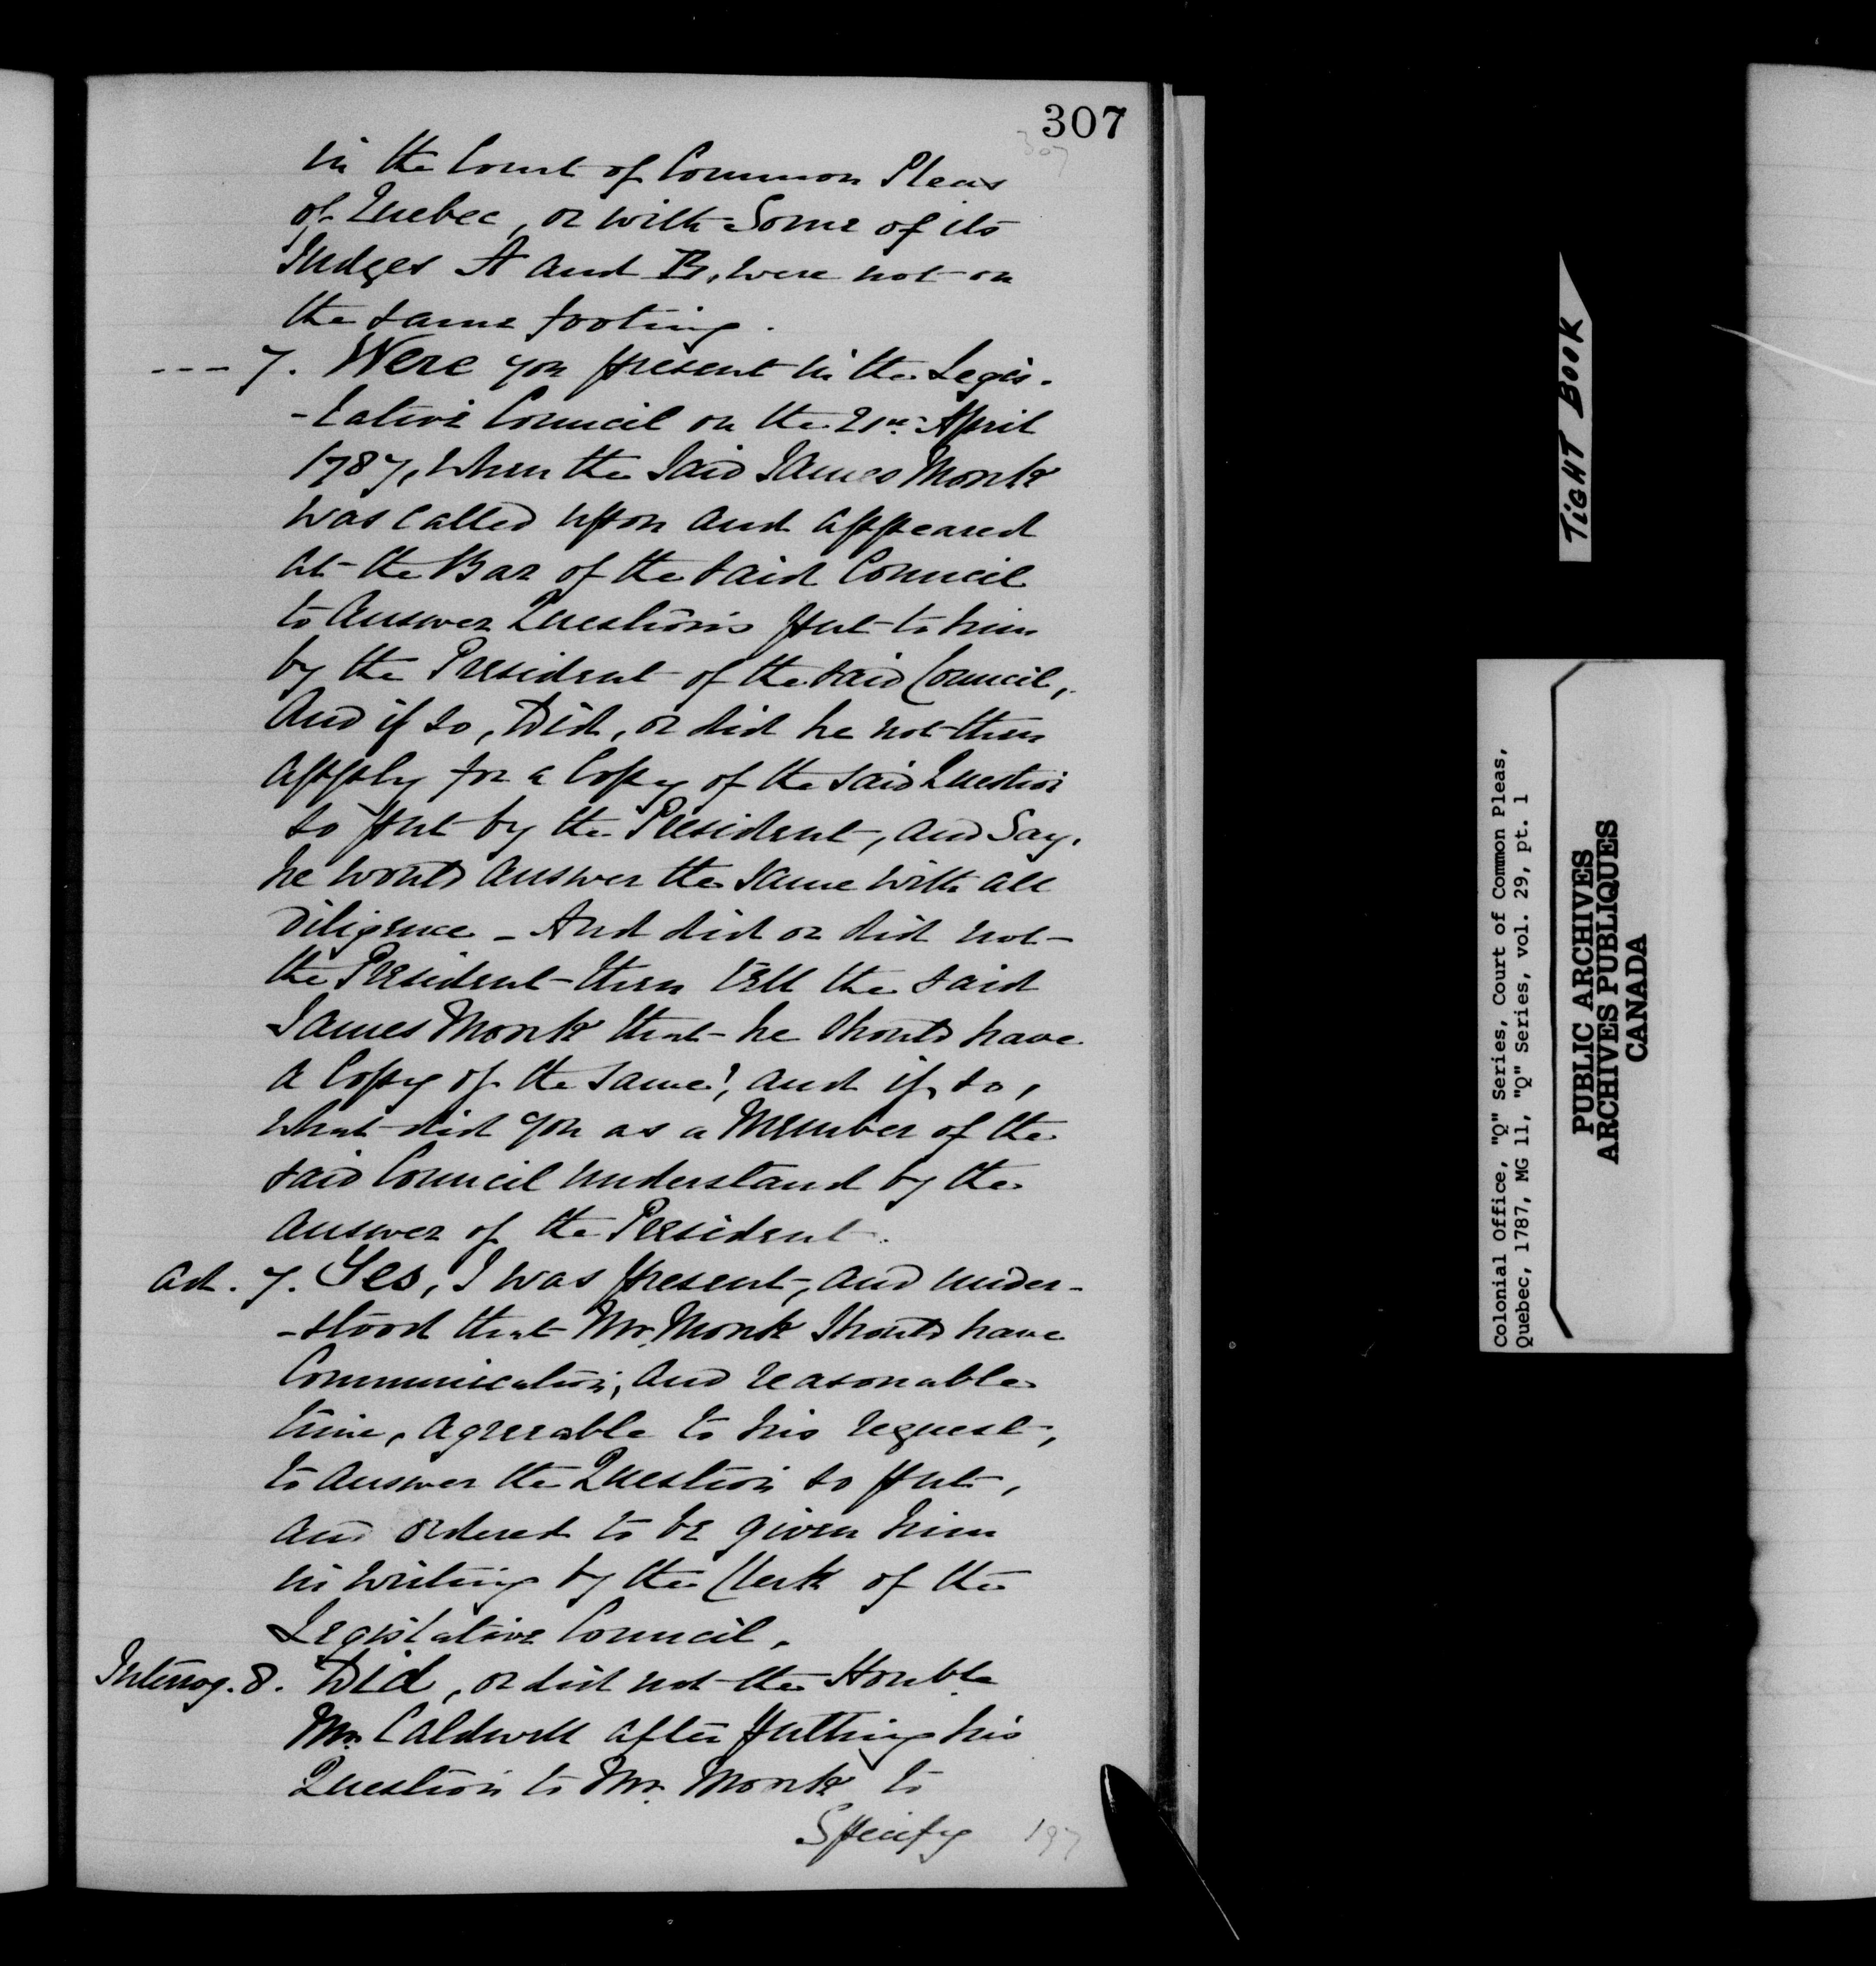 307
307
in the Court of Common Pleas
of Quebec, or with Some of its
Judges A and B, were not on
the same footing.
--- 7. Were you present in the Legis-
-lative Council on the 21st April
1787, when the Said James Monk
was called upon and appeared
at the Bar of the said Council
to answer Questions put to him
by the President of the said Council,
And if so, Did, or did he not then
apply for a Copy of the said Question
so put by the President, and Say,
he would answer the same with all
diligence - And did or did not
the President then tell the said
James Monk that he should have
a Copy of the same?, and if so,
what did you as a Member of the
said Council understand by the
answer of the President.
Ad. 7. Yes, I was present, and under-
-stood that Mr. Monk should have
Communication, and reasonable
time, agreeable to his request,
to answer the Question so put,
and ordered to be given him
in writing by the Clerk of the
Legislative Council.
Interrog. 8. Did, or did not the Honble
Mr. Caldwell after putting his
Question to Mr. Monk to
Specify
197
TIGHT BOOK
Colonial Office, "Q" Series, Court of Common Pleas,
Quebec, 1787, MG 11, "Q" Series, vol. 29, pt. 1
PUBLIC ARCHIVES
ARCHIVES PUBLIQUES
CANADA